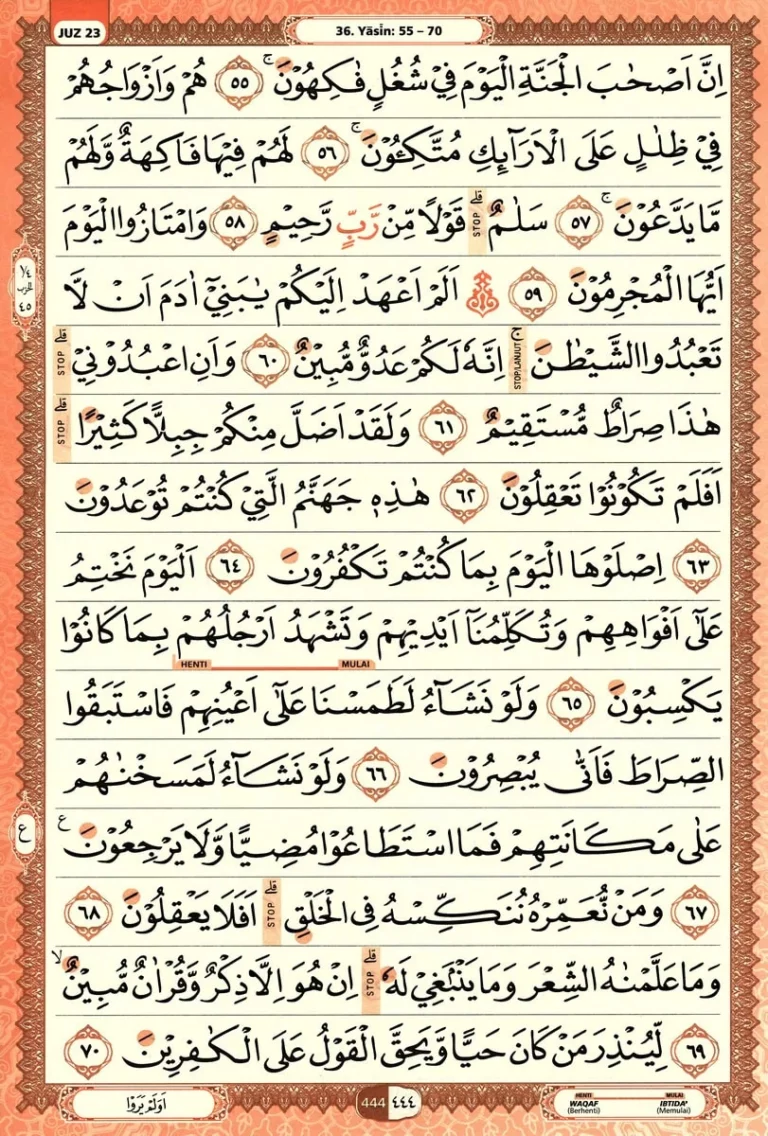 JUZ 23
36. Yāsīn: 55 – 70
اِنَّ اَصْحٰبَ الْجَنَّةِ الْيَوْمَ فِيْ شُغُلٍ فٰكِهُوْنَ ۚ ٥٥ هُمْ وَاَزْوَاجُهُمْ
فِيْ ظِلٰلٍ عَلَى الْاَرَاۤىِٕكِ مُتَّكِـُٔوْنَ ۚ ٥٦ لَهُمْ فِيْهَا فَاكِهَةٌ وَّلَهُمْ
مَّا يَدَّعُوْنَ ۚ ٥٧ سَلٰمٌ ۗ STOP قَوْلًا مِّنْ رَّبٍّ رَّحِيْمٍ ٥٨ وَامْتَازُوا الْيَوْمَ
اَيُّهَا الْمُجْرِمُوْنَ ٥٩ ۞ اَلَمْ اَعْهَدْ اِلَيْكُمْ يٰبَنِيْٓ اٰدَمَ اَنْ لَّا
١/٤ الحزب ٤٥
تَعْبُدُوا الشَّيْطٰنَ ۚ STOP/LANJUT اِنَّهٗ لَكُمْ عَدُوٌّ مُّبِيْنٌ ٦٠ وَاَنِ اعْبُدُوْنِيْ ۗ STOP
هٰذَا صِرَاطٌ مُّسْتَقِيْمٌ ٦١ وَلَقَدْ اَضَلَّ مِنْكُمْ جِبِلًّا كَثِيْرًا ۗ STOP
اَفَلَمْ تَكُوْنُوْا تَعْقِلُوْنَ ٦٢ هٰذِهٖ جَهَنَّمُ الَّتِيْ كُنْتُمْ تُوْعَدُوْنَ
٦٣ اِصْلَوْهَا الْيَوْمَ بِمَا كُنْتُمْ تَكْفُرُوْنَ ٦٤ اَلْيَوْمَ نَخْتِمُ
عَلٰٓى اَفْوَاهِهِمْ وَتُكَلِّمُنَآ اَيْدِيْهِمْ وَتَشْهَدُ اَرْجُلُهُمْ بِمَا كَانُوْا
HENTI MULAI
يَكْسِبُوْنَ ٦٥ وَلَوْ نَشَاۤءُ لَطَمَسْنَا عَلٰٓى اَعْيُنِهِمْ فَاسْتَبَقُوا
الصِّرَاطَ فَاَنّٰى يُبْصِرُوْنَ ٦٦ وَلَوْ نَشَاۤءُ لَمَسَخْنٰهُمْ
عَلٰى مَكَانَتِهِمْ فَمَا اسْتَطَاعُوْا مُضِيًّا وَّلَا يَرْجِعُوْنَ ࣖ
ع
٦٧ وَمَنْ نُّعَمِّرْهُ نُنَكِّسْهُ فِى الْخَلْقِ ۗ STOP اَفَلَا يَعْقِلُوْنَ ٦٨
وَمَا عَلَّمْنٰهُ الشِّعْرَ وَمَا يَنْۢبَغِيْ لَهٗ ۗ STOP اِنْ هُوَ اِلَّا ذِكْرٌ وَّقُرْاٰنٌ مُّبِيْنٌ ۙ
٦٩ لِّيُنْذِرَ مَنْ كَانَ حَيًّا وَّيَحِقَّ الْقَوْلُ عَلَى الْكٰفِرِيْنَ ٧٠
اَوَلَمْ يَرَوْا
444 ٤٤٤
HENTI MULAI
WAQAF IBTIDA'
(Berhenti) (Memulai)